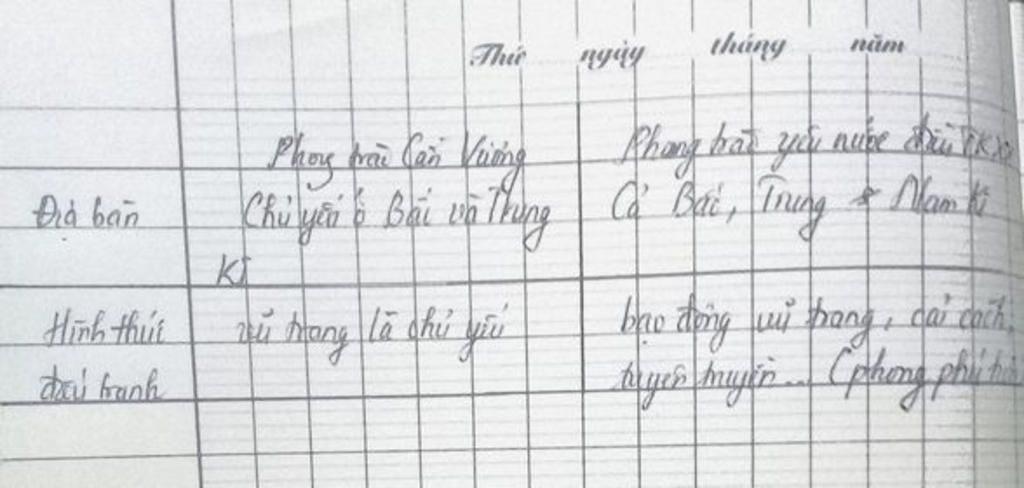 Thứ ngày tháng năm
Phong trào Cần Vương Phong trào yêu nước đầu TKXX
Địa bàn Chủ yếu ở Bắc và Trung Cả Bắc, Trung Nam Kì
Kì
Hình thức vũ trang là chủ yếu bạo động vũ trang, cải cách,
đấu tranh tuyên truyền... (phong phú